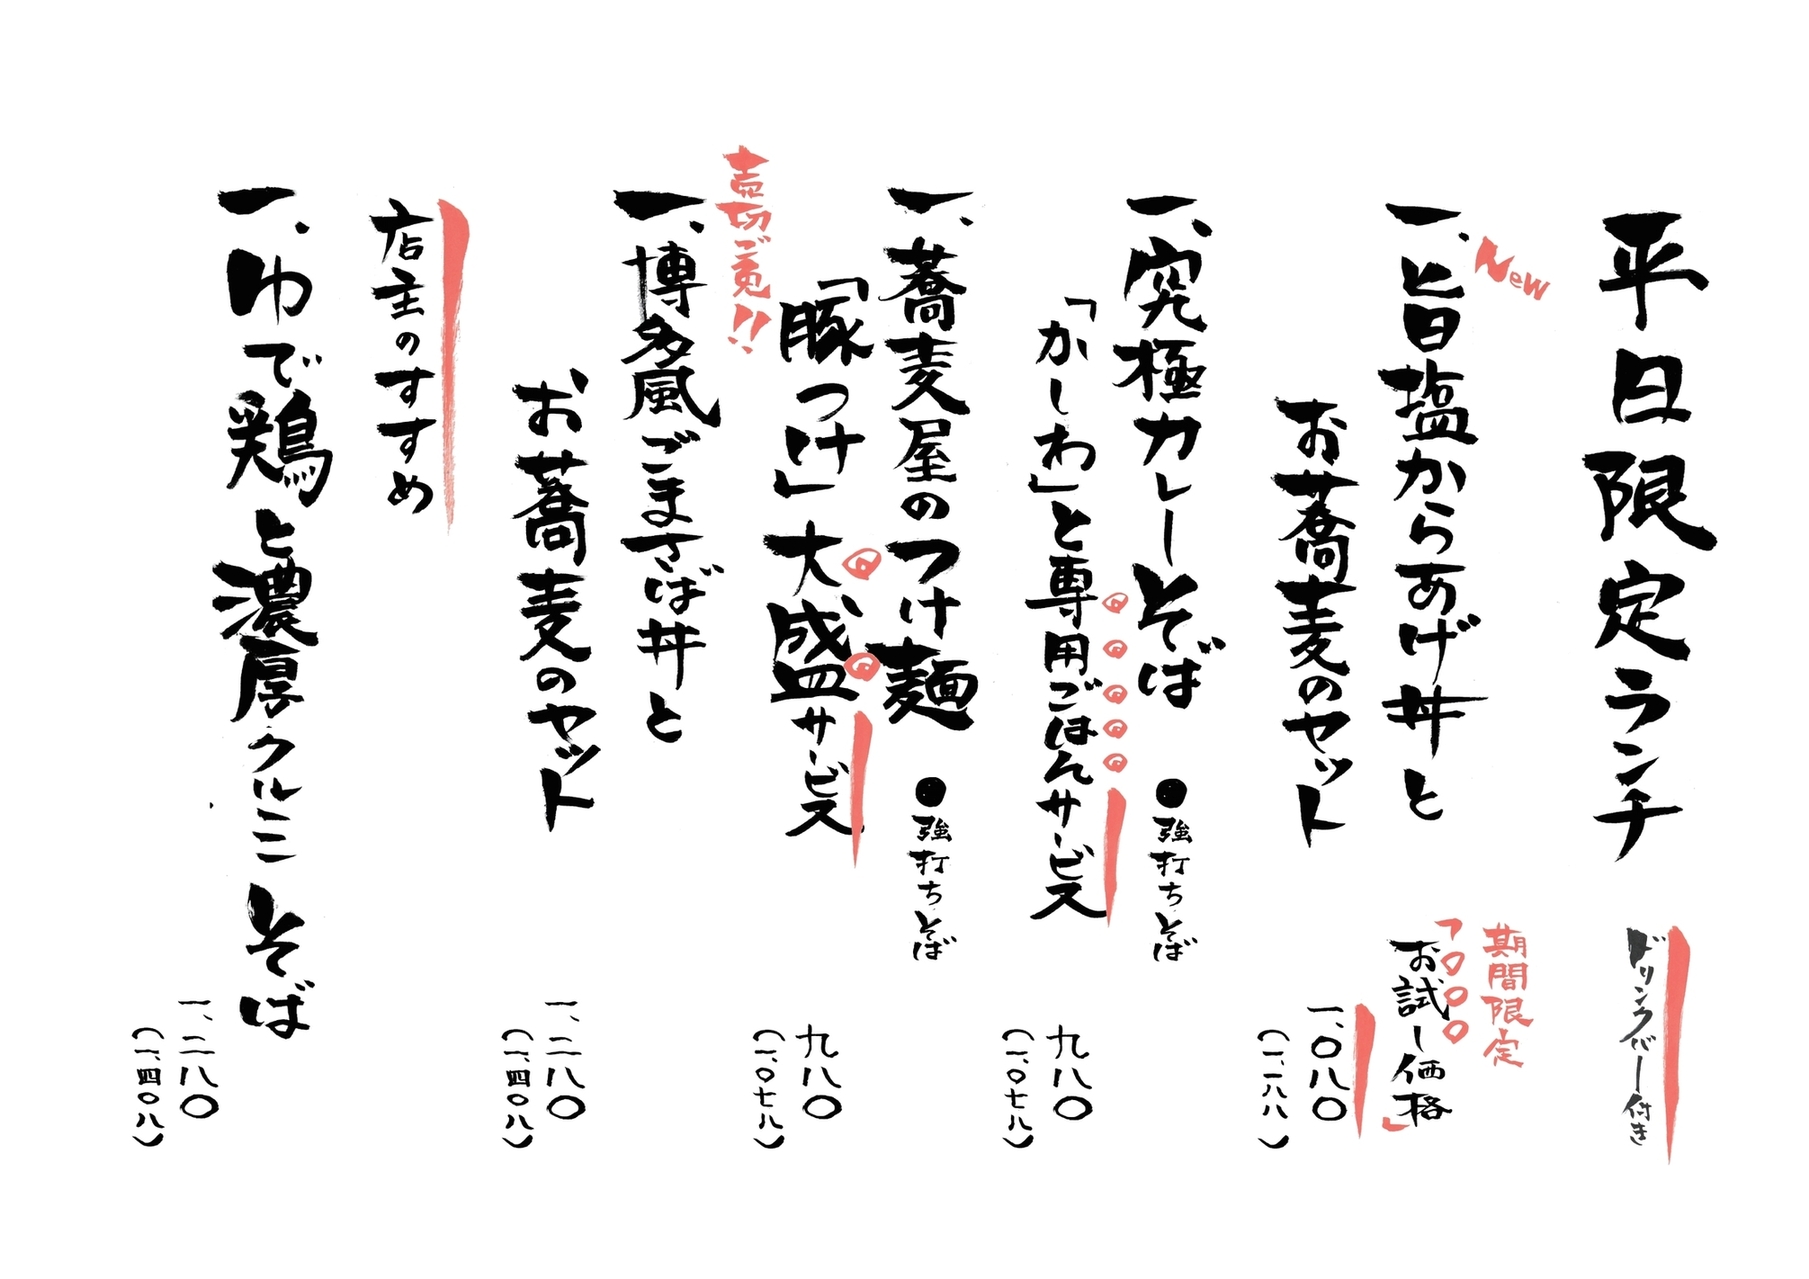 平日限定ランチ
ドリンクバー付き
New
一、旨塩からあげ丼と
お蕎麦のセット
期間限定
「お試し価格」
一、〇八〇
(一、一八八)
一、究極カレーそば
●強打ちそば
「かしわ」と専用ごはんサービス
九八〇
(一、〇七八)
一、蕎麦屋のつけ麺
●強打ちそば
「豚つけ」大盛サービス
九八〇
(一、〇七八)
売切ご免!!
一、博多風ごまさば丼と
お蕎麦のセット
一、二八〇
(一、四〇八)
店主のすすめ
一、ゆで鶏と濃厚クルミそば
一、二八〇
(一、四〇八)